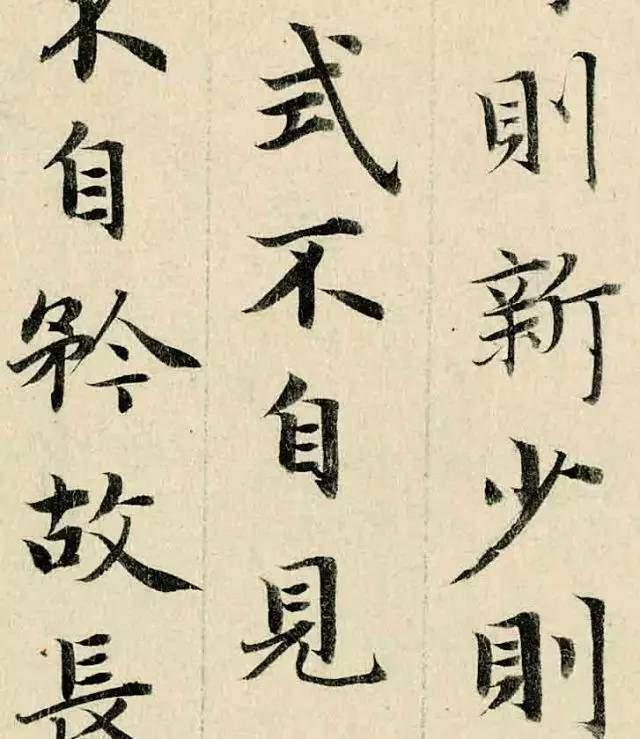 則新少則
式不自見
不自矜故長